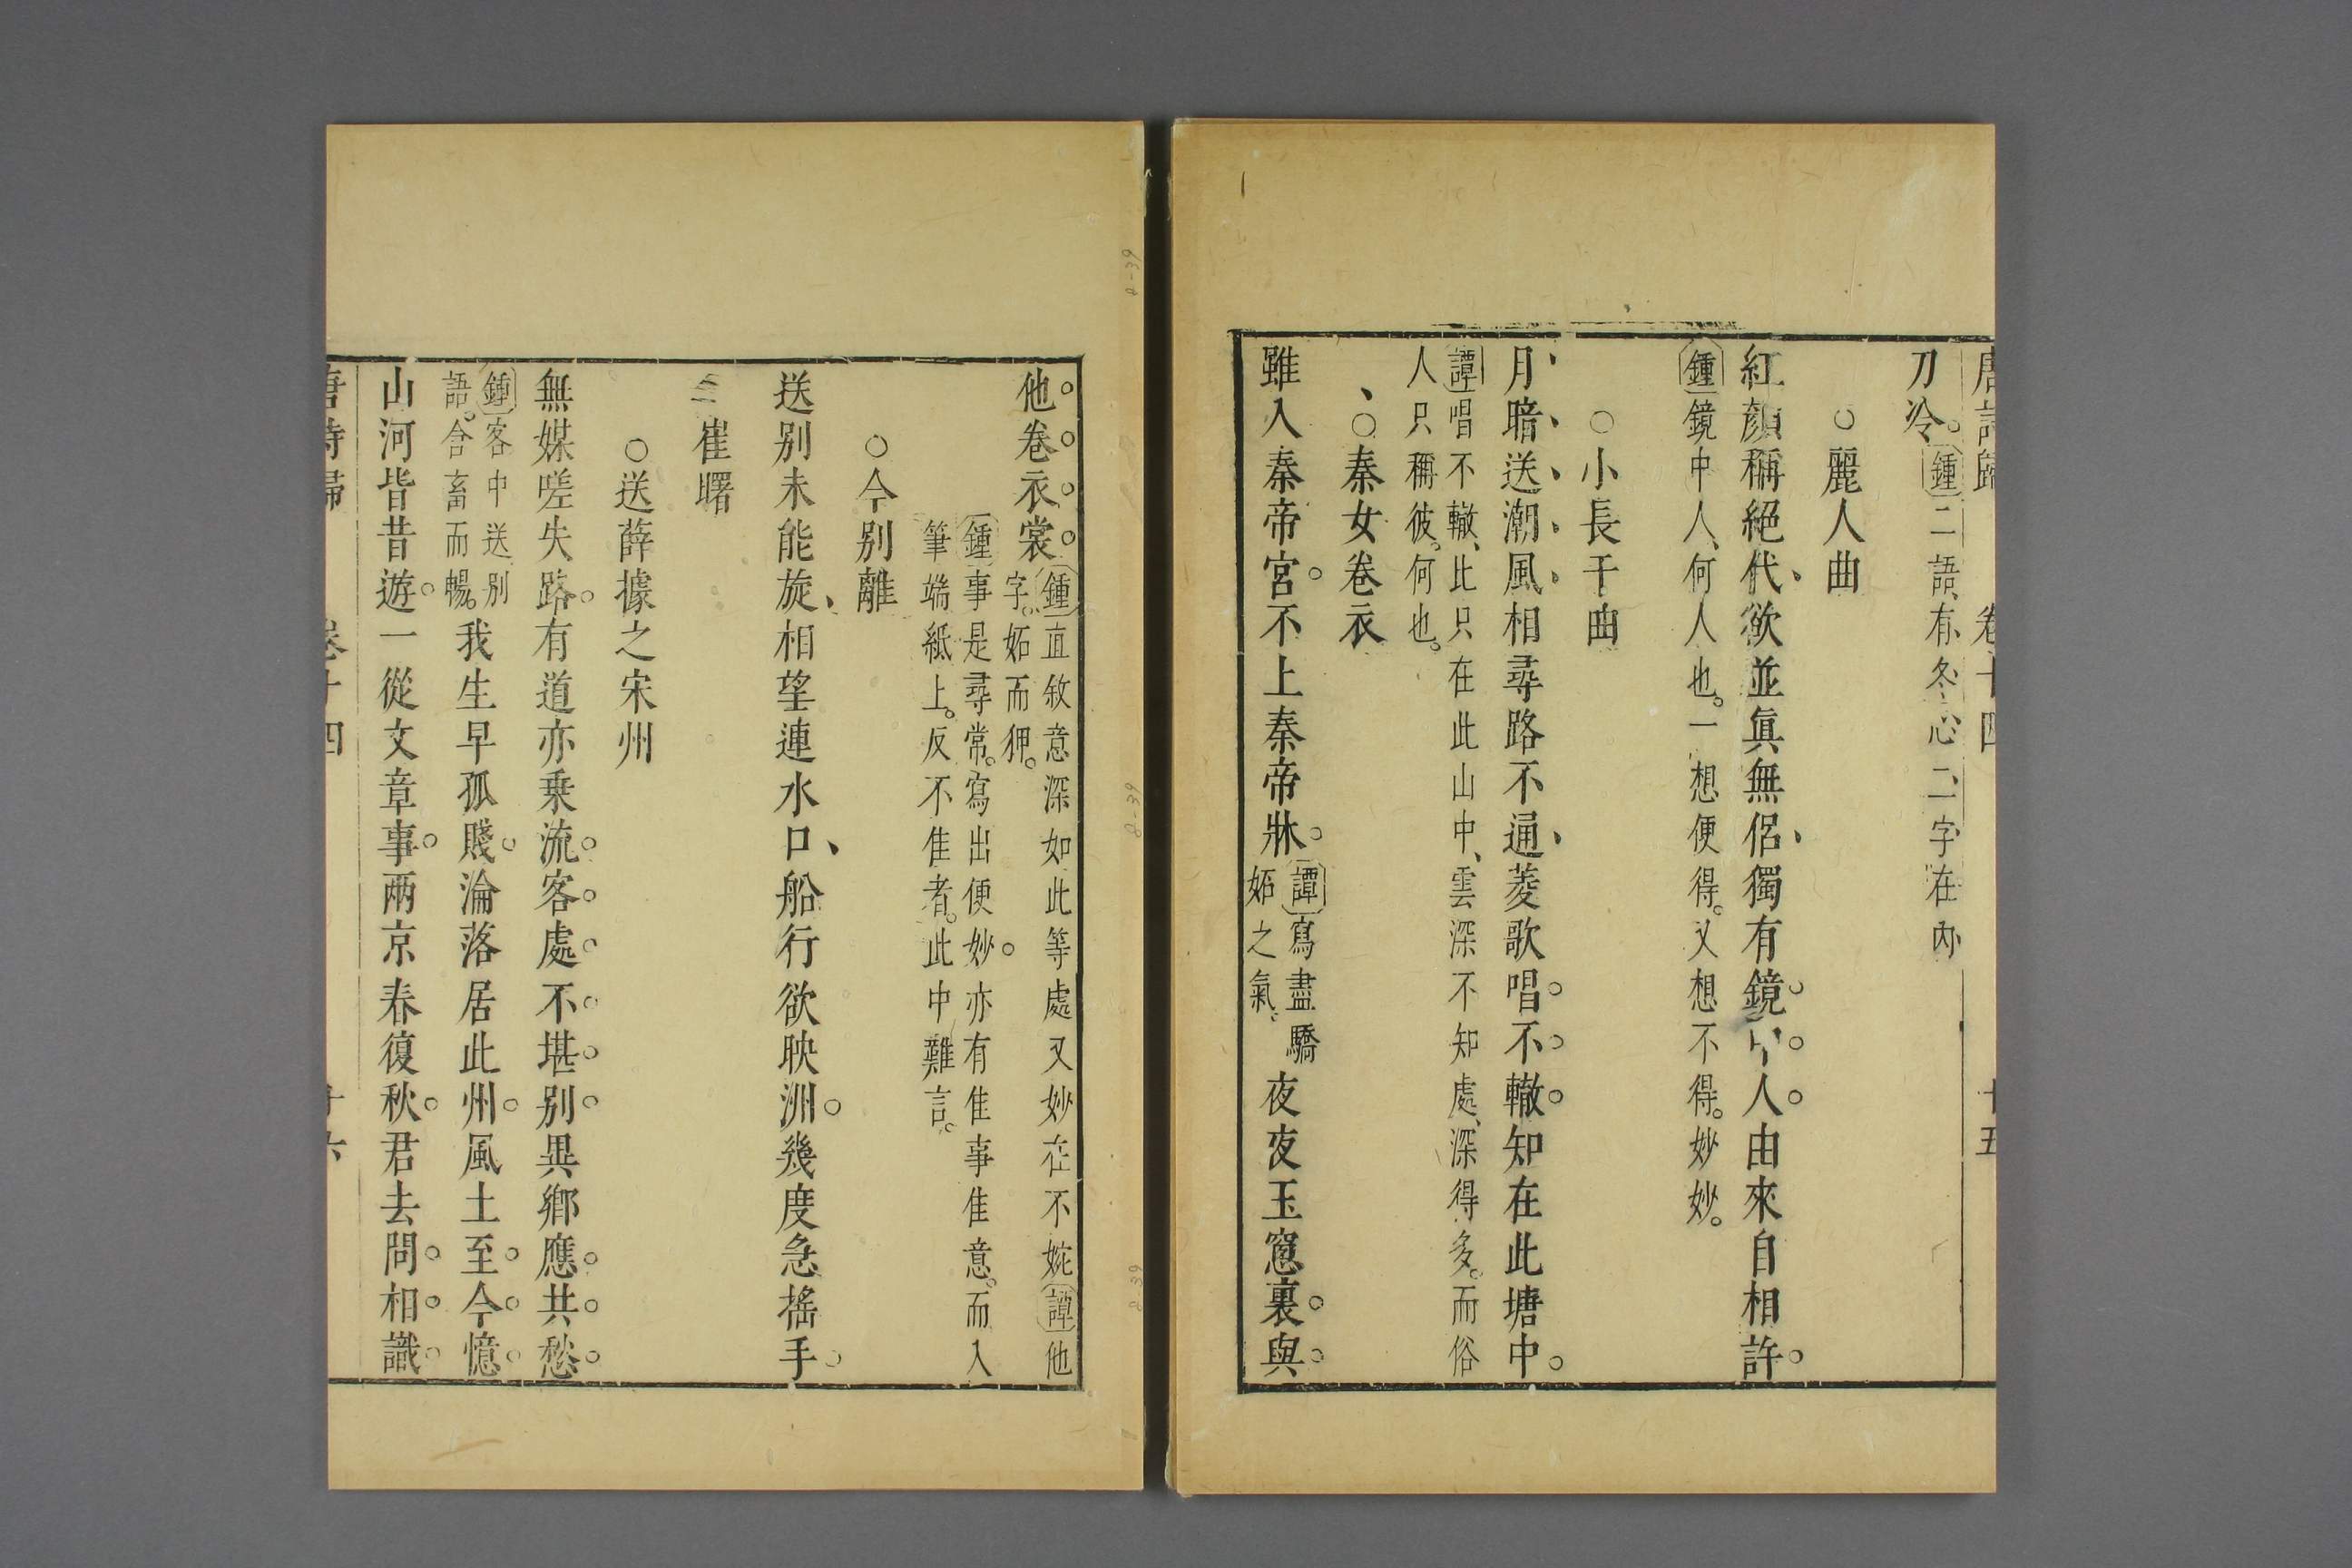 唐詩歸 卷十四 十五
刀冷。鍾二語、有冬心二字在內
○麗人曲
紅顏稱絕代、欲並眞無侶、獨有鏡中人由來自相許。
鍾鏡中人、何人也。一想便得。又想不得。妙妙。
○小長干曲
月暗送潮風相尋路不通、菱歌唱不轍知在此塘中。
譚唱不轍、此只在此山中、雲深不知處、深得多。而俗
人只稱彼。何也。
○秦女卷衣
雖入秦帝宮。不上秦帝牀。譚寫盡驕
妬之氣。夜夜玉窻裏與
他卷衣裳。鍾直敘意深如此等處又妙在不婉譚他
字。妬而狎。
鍾事是尋常。寫出便妙。亦有佳事佳意。而入
筆端紙上。反不佳者。此中難言。
○今別離
送别未能旋、相望連水口、船行欲映洲。幾度急搖手。
崔曙
○送薛據之宋州
無媒嗟失路。有道亦乗流。客處不堪别異鄉應共愁
鍾客中送別
語。含畜而暢。我生早孤賤。淪落居此州。風土至今憶
山河皆昔遊。一從文章事。兩京春復秋。君去問相識
唐詩歸 卷十四 十六